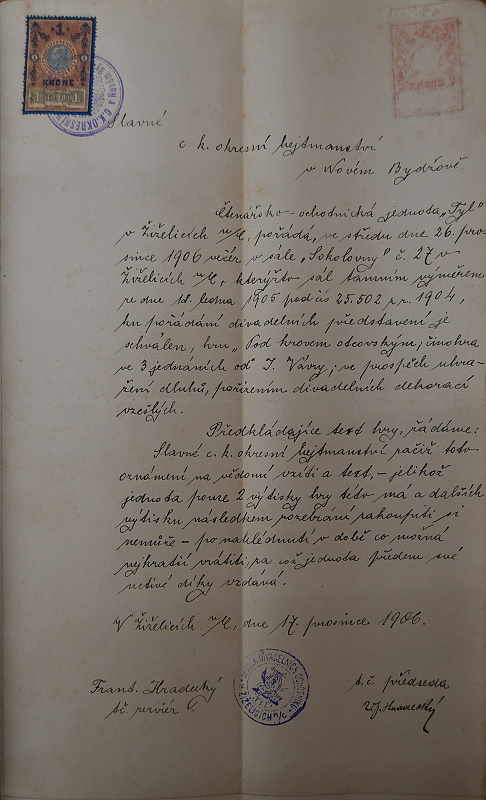 1
KRONE
Slavné
c. k. okresní hejtmanství
v Novém Bydžově.
Čtenářsko-ochotnická jednota „Tyl"
v Žiželicích n/C, pořádá, ve středu dne 26. pro-
since 1906 večer v sále „Sokolovny" č. 27 v
Žiželicích n/C, kterýžto sál tamním výměrem
ze dne 18. ledna 1905 pod čís 25.502 z r. 1904,
ku pořádání divadelních představení je
schválen, hru „Pod krovem otcovským", činohra
ve 3 jednáních od J. Vávry, ve prospěch uhra-
žení dluhů, pořízením divadelních dekorací
vzešlých.
Předkládajíce text hry, žádáme:
Slavné c. k. okresní hejtmanství račiž toto
oznámení na vědomí vzíti a text, – jelikož
jednota pouze 2 výtisky hry této má a dalších
výtisku následkem rozebrání zakoupiti si
nemůže – po nahlédnutí v době co možná
nejkratší vrátiti, za což jednota předem své
uctivé díky vzdává.
V Žiželicích n/C, dne 17. prosince 1906.
Frant. Hradecký
t.č. předseda
tč.
DIVADELNÍCH OCHOTNÍKŮ
TYL
ŽIŽELICÍCH n/C